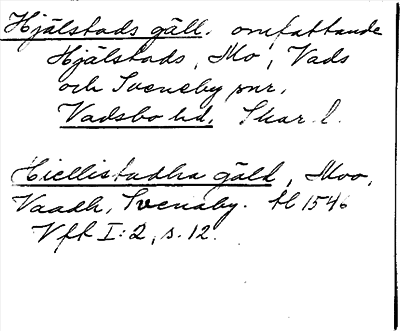 Hjälstads gäll. omfattande
Hjälstads, Mo, Vads
och Sveneby snr,
Vadsbo hd, Skar. l.
Hiellistadha gäld, Moo,
Vaadh, Svenaby. tl 1546
Vff I:2, s. 12.